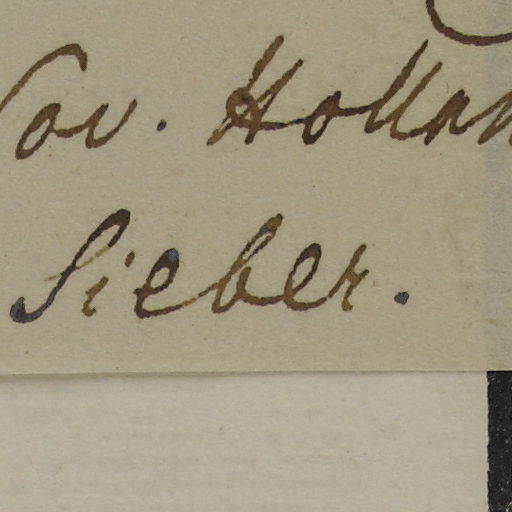 Nov. Hollan
Sieber.